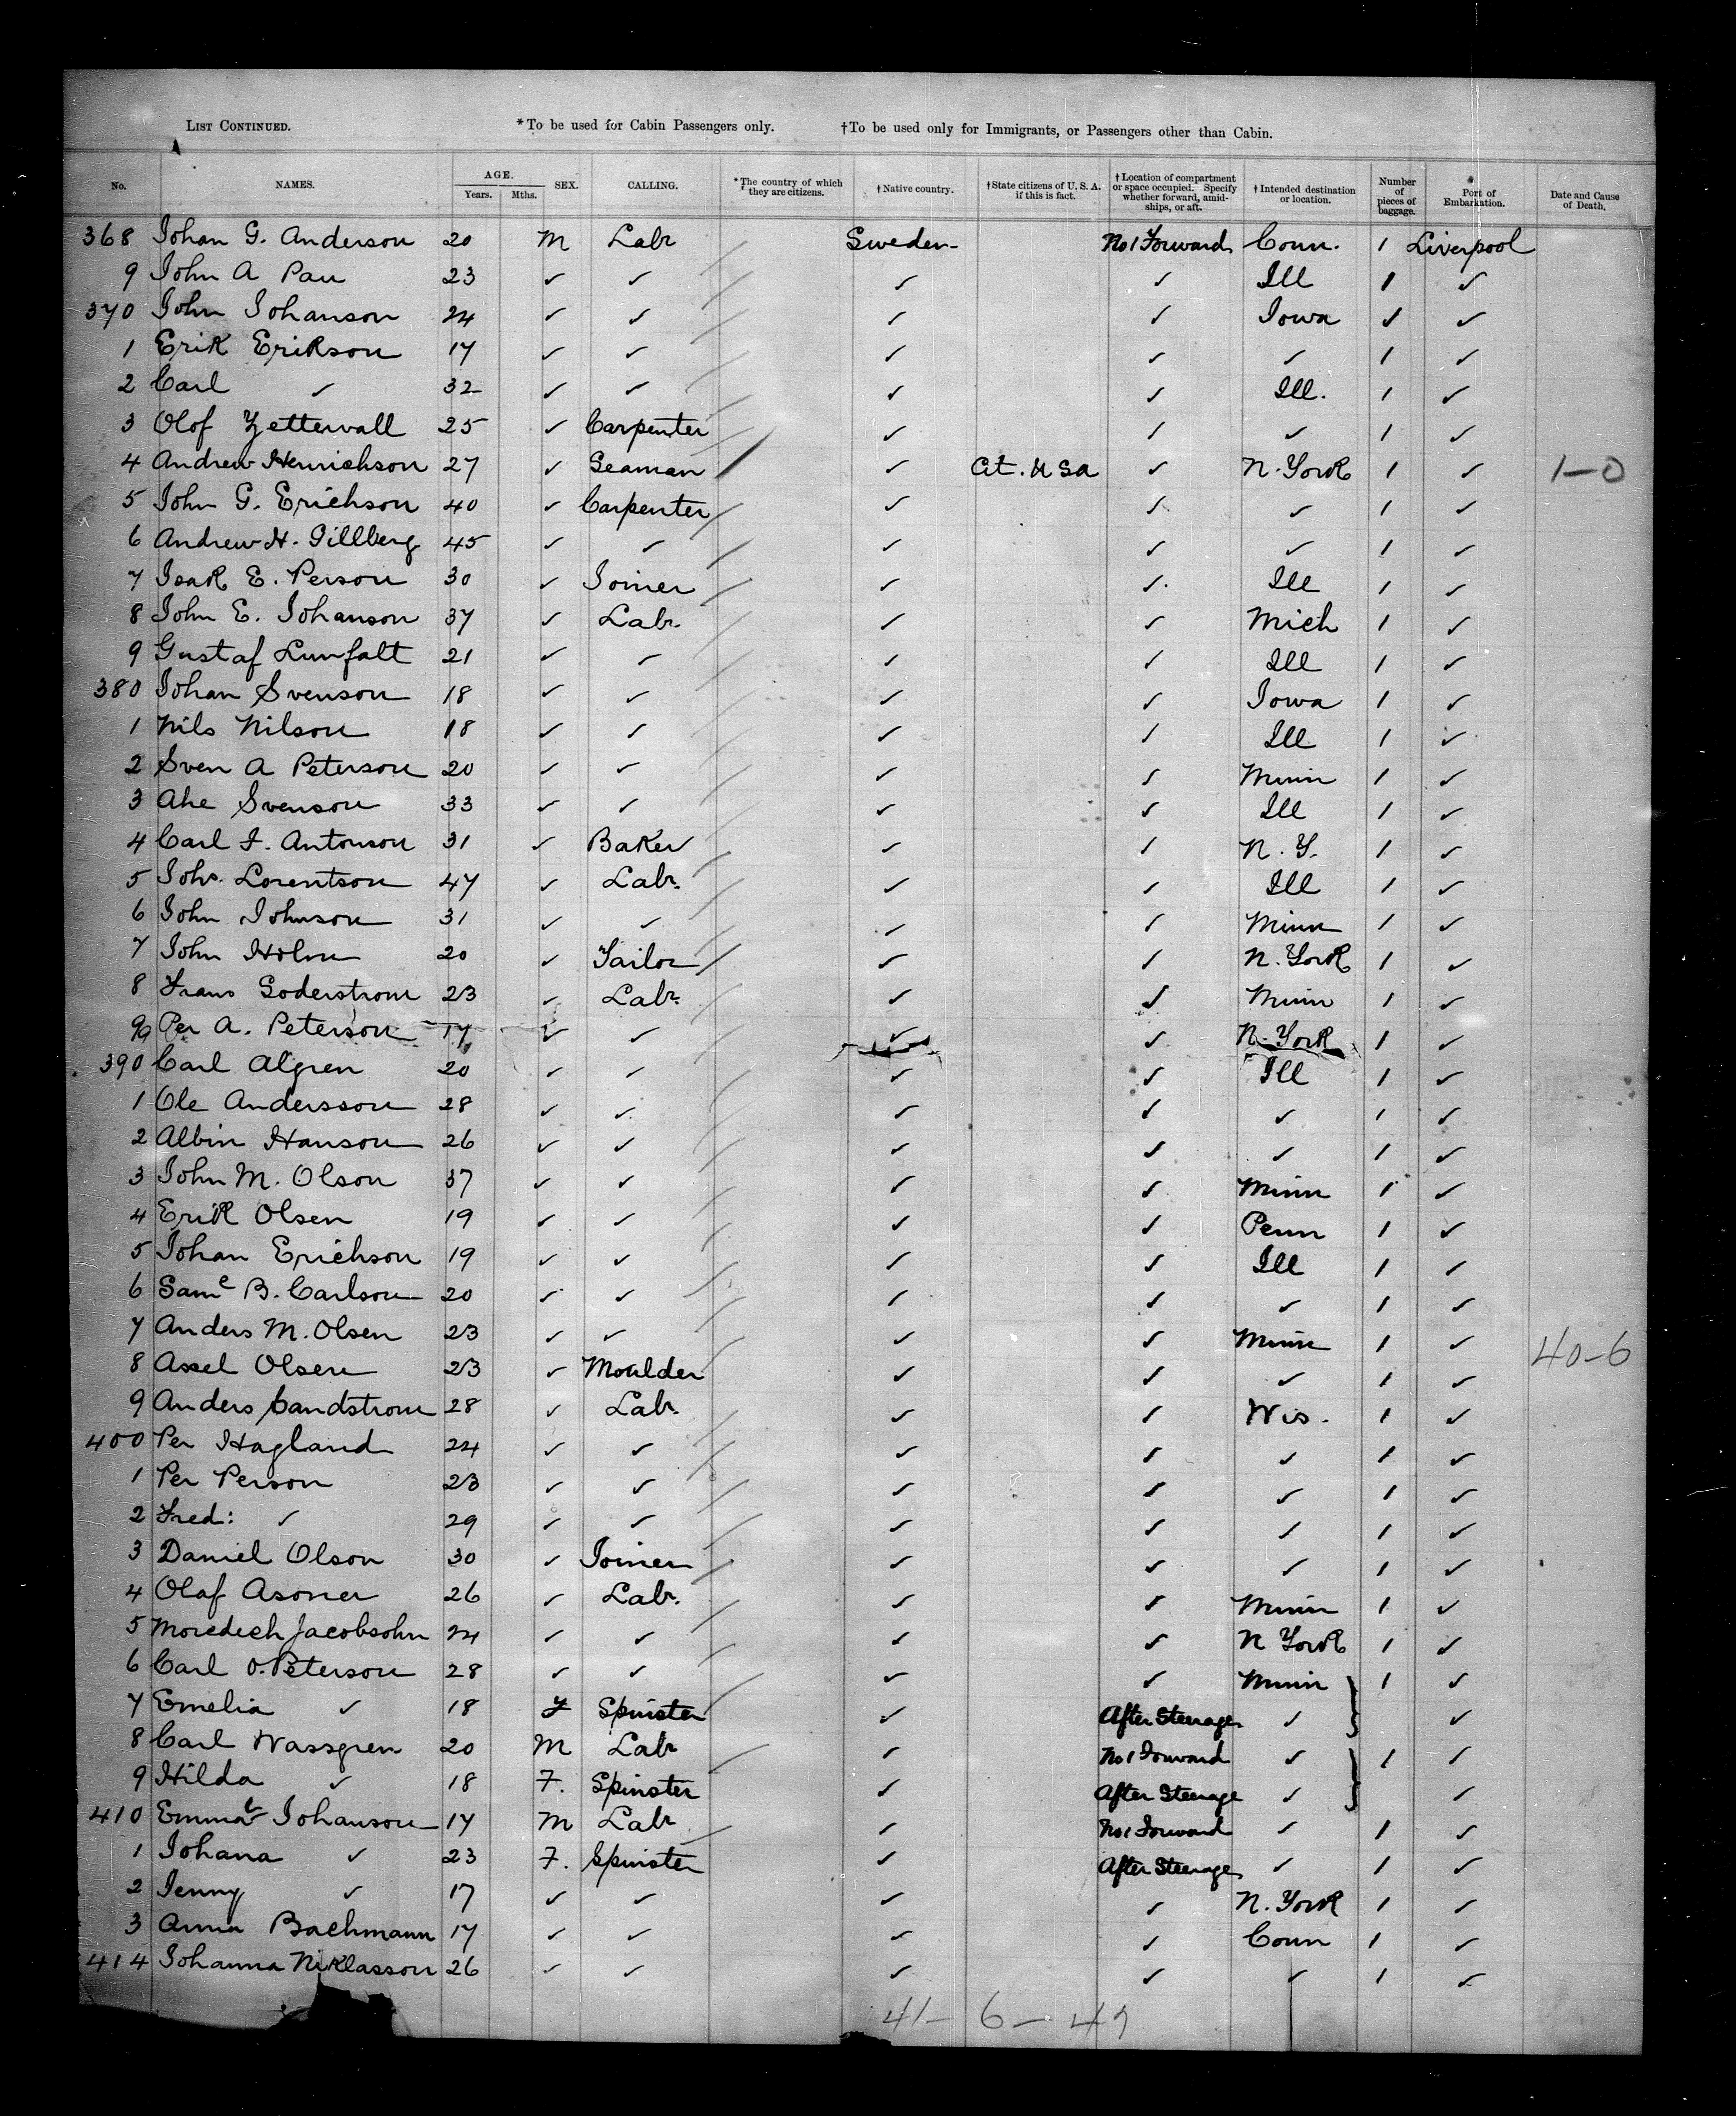 LIST CONTINUED. *To be used for Cabin Passengers only. †To be used only for Immigrants, or Passengers other than Cabin.
No. NAMES. AGE. Years. Mths. SEX. CALLING. *The country of which they are citizens. †Native country. †State citizens of U. S. A. if this is fact. †Location of compartment or space occupied. Specify whether forward, amidships, or aft. †Intended destination or location. Number of pieces of baggage. Port of Embarkation. Date and Cause of Death.
368 Johan G. Anderson 20 M Labr Sweden No 1 Forward Conn. 1 Liverpool
9 John A Pau 23 ✓ ✓ ✓ ✓ Ill 1 ✓
370 John Johanson 24 ✓ ✓ ✓ ✓ Iowa ✓ ✓
1 Erik Erikson 17 ✓ ✓ ✓ ✓ ✓ 1 ✓
2 Carl ✓ 32 ✓ ✓ ✓ ✓ Ill. 1 ✓
3 Olof Zettervall 25 ✓ Carpenter ✓ ✓ ✓ 1 ✓
4 Andrew Henrichson 27 ✓ Seaman ✓ Cit. U S A ✓ N. York 1 ✓ 1-0
5 John G. Erichson 40 ✓ Carpenter ✓ ✓ ✓ 1 ✓
6 Andrew H. Gillberg 45 ✓ ✓ ✓ ✓ ✓ 1 ✓
7 Isak E. Person 30 ✓ Joiner ✓ ✓ Ill 1 ✓
8 John E. Johanson 37 ✓ Labr. ✓ ✓ Mich 1 ✓
9 Gustaf Lunfalt 21 ✓ ✓ ✓ ✓ Ill 1 ✓
380 Johan Svenson 18 ✓ ✓ ✓ ✓ Iowa 1 ✓
1 Nils Nilson 18 ✓ ✓ ✓ ✓ Ill 1 ✓
2 Sven A Peterson 20 ✓ ✓ ✓ ✓ Minn 1 ✓
3 Ake Svenson 33 ✓ ✓ ✓ ✓ Ill 1 ✓
4 Carl J. Antonson 31 ✓ Baker ✓ ✓ N. Y. 1 ✓
5 Johs. Lorentson 47 ✓ Labr. ✓ ✓ Ill 1 ✓
6 John Johnson 31 ✓ ✓ ✓ ✓ Minn 1 ✓
7 John Holm 20 ✓ Tailor ✓ ✓ N. York 1 ✓
8 Frans Soderstrom 23 ✓ Labr. ✓ ✓ Minn 1 ✓
9 Per A. Peterson 17 ✓ ✓ ✓ ✓ N. York 1 ✓
390 Carl Algren 20 ✓ ✓ ✓ ✓ Ill 1 ✓
1 Ole Andersson 28 ✓ ✓ ✓ ✓ ✓ 1 ✓
2 Albin Hanson 26 ✓ ✓ ✓ ✓ ✓ 1 ✓
3 John M. Olson 37 ✓ ✓ ✓ ✓ Minn 1 ✓
4 Erik Olsen 19 ✓ ✓ ✓ ✓ Penn 1 ✓
5 Johan Erichson 19 ✓ ✓ ✓ ✓ Ill 1 ✓
6 Saml B. Carlson 20 ✓ ✓ ✓ ✓ ✓ 1 ✓
7 Anders M. Olsen 23 ✓ ✓ ✓ ✓ Minn 1 ✓ 40-6
8 Assel Olsen 23 ✓ Moulder ✓ ✓ ✓ 1 ✓
9 Anders Sandstrom 28 ✓ Labr. ✓ ✓ Wis. 1 ✓
400 Per Hagland 24 ✓ ✓ ✓ ✓ ✓ 1 ✓
1 Per Person 23 ✓ ✓ ✓ ✓ ✓ 1 ✓
2 Fred: ✓ 29 ✓ ✓ ✓ ✓ ✓ 1 ✓
3 Daniel Olson 30 ✓ Joiner ✓ ✓ ✓ 1 ✓
4 Olaf Asoner 26 ✓ Labr. ✓ ✓ Minn 1 ✓
5 Moredech Jacobsohn 24 ✓ ✓ ✓ ✓ N York 1 ✓
6 Carl O. Peterson 28 ✓ ✓ ✓ ✓ Minn 1 ✓
7 Emelia ✓ 18 F Spinster ✓ After Steerage ✓ ✓
8 Carl Wassgren 20 M Labr ✓ No 1 Forward ✓ 1 ✓
9 Hilda ✓ 18 F. Spinster ✓ After Steerage ✓ ✓
410 Johanson 17 M Labr ✓ No 1 Forward ✓ 1 ✓
1 Johana ✓ 23 F. Spinster ✓ After Steerage ✓ 1 ✓
2 Jenny ✓ 17 ✓ ✓ ✓ ✓ N. York 1 ✓
3 Anna Bachmann 17 ✓ ✓ ✓ ✓ Conn 1 ✓
414 Johanna Niklasson 26 ✓ ✓ ✓ ✓ ✓ 1 ✓
41- 6- 47